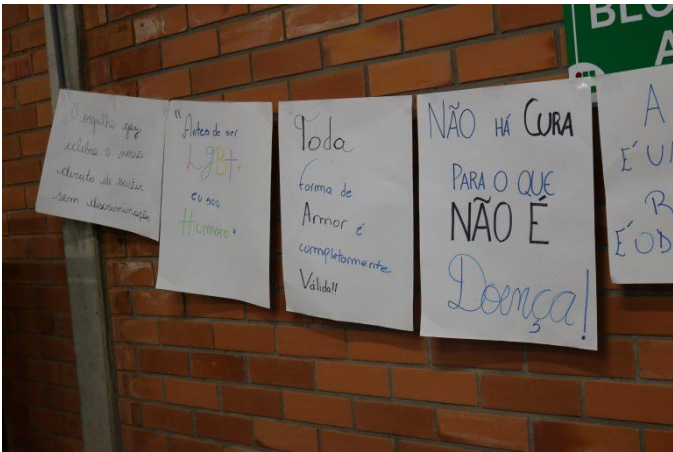 BLO
A
O orgulho gay
celebra o nosso
direito de existir
sem discriminação
"Antes de ser
LgBt+
eu sou
Humano"
Toda
forma de
Amor é
completamente
Válida!!
NÃO HÁ CURA
PARA O QUE
NÃO É
Doença!
A
É U
R
É ÓD